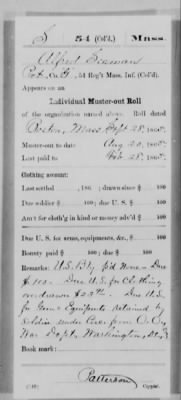 S 54 (Col'd.) Mass.
Alfred Seaman
Pvt., Co. G, 54 Reg't Mass. Inf. (Col'd).
Appears on an
Individual Muster-out Roll
of the organization named above. Roll dated
Boston, Mass Sept 28, 1865.
Muster-out to date Aug 20, 1865.
Last paid to Feb 28, 1865.
Clothing account:
Last settled , 186 ; drawn since $ 100
Due soldier $ 100; due U. S. $ 100
Am't for cloth'g in kind or money adv'd $ 100
Due U. S. for arms, equipments, &c., $ 100
Bounty paid $ 100; due $ 100
Remarks: U.S. Bty p'd None – Due
$100. Due U.S. for Clothing
overdrawn $
Due U.S.
for Equipments retained by
Soldier under
War Dept. Washington,
Book mark:
Patterson
Copyist.